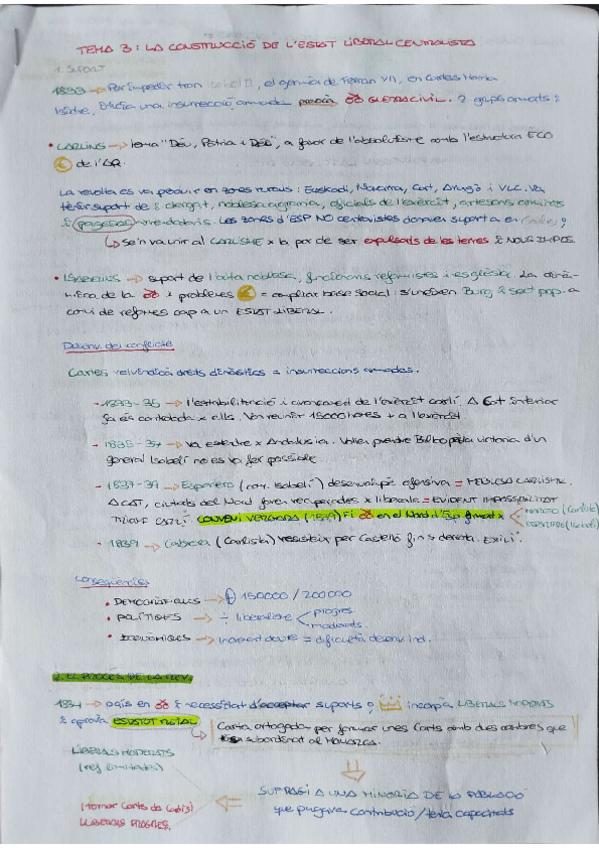 TEMA 3: LA CONSTRUCCIÓ DE L'ESTAT LIBERAL CENTRALISTA
1. SUPORT
1833 → Per impedir tron Isabel II, el germà de Ferran VII, en Carles Maria
Isidre, inicia una insurrecció armada GUERRA CIVIL. 2 grups armats:
• CARLINS → lema "Déu, Pàtria i ", a favor de l'absolutisme amb l'estructura ECO
€ de l'AR.
La revolta es va produir en zones rurals: Euskadi, Navarra, Cat, Aragó i VLC. Va
tenir suport de: clergat, noblesa agrària, oficials de l'exèrcit, artesans
& pagesos arrendataris. Les zones d'ESP NO donaven suport a en
↳ se'n va unir al CARLISME x la por de ser expulsats de les terres & NOUS IMPOS.
• ISABELINS → suport de l'alta noblesa, funcionaris reformistes i església. La
de la i problemes € = ampliar base social: s'uneixen Burg & sect pop. a
canvi de reformes cap a un ESTAT LIBERAL.
Desenv. del conflicte
Carles reivindicà drets dinàstics a insurreccions armades.
- 1833-35 → l'estabilització i avançament de l'exèrcit carlí. A Cat interior
ja és controlada x ells. Van reunir 15000 homes + a l'exèrcit.
- 1835-37 → va estendre x Andalusia. Volien prendre Bilbo però la victoria d'un
general Isabelí no es va fer possible.
- 1837-39 → Espartero (gen. isabelí) desenvolupà ofensiva = CARLISTA.
A CAT, ciutats del Nord foren recuperades x liberals = EVIDENT IMPOSSIBILITAT
TRIOMF CARLÍ. CONVENI VERGARA (1839) Fi en el Nord d'Esp firmat x
MAROTO (Carlista)
ESPARTERO (Isabelí)
- 1839 → Cabrera (Carlista) resisteix per Castelló fins derrota. Exili.
Conseqüències
• DEMOGRÀFIQUES → 150000 / 200000
• POLÍTIQUES → ÷ liberalisme
progres.
moderats.
• ECONÒMIQUES → increment deute = dificultà desenv ind.
2. EL PROCÉS DE LA REV.
1834 → país en & necessitat d'acceptar suports, incorpora LIBERALS MODERATS
& aprova ESTATUT REIAL
↳ Carta otorgada per formar unes Corts amb dues cambres que
subordinat al MONARCA.
LIBERALS MODERATS
(ref limitades)
SUFRAGI A UNA MINORIA DE la POBLACIÓ
que pagava contribució / tenia capacitats
(tornar Corts de Cadis)
LIBERALS PROGRES.